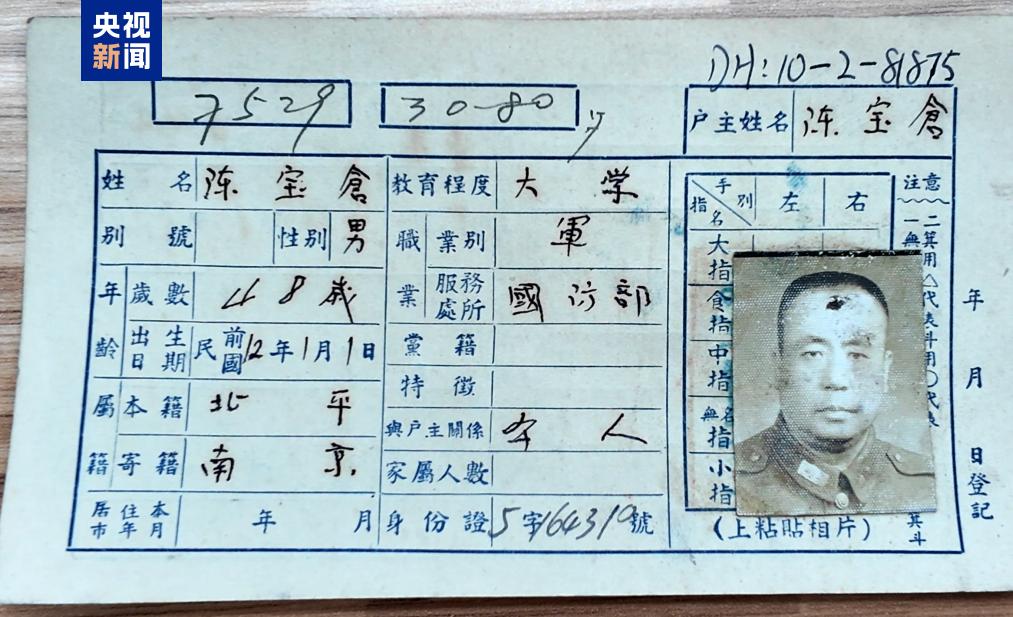 央视
新闻
DH:10-2-81875
7529
30-80
户主姓名 陈宝倉
姓名 陈宝倉
別號
性別 男
年齡 歲數 48歲
出生日期 民國前12年1月1日
屬籍 本籍 北平
寄籍 南京
居住本市年月 年 月
教育程度 大学
職業 業別 軍
服務處所 國防部
黨籍
特徵
與户主關係 本人
家屬人數
身份證 5字164319號
手別 指名 左 右
大指
食指
中指
無名指
小指
(上粘貼相片)
注意
二箕用△代表斗用○代表
一無
箕斗
年 月 日登記